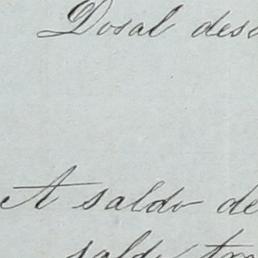 Dosal des
A saldo de
saldo